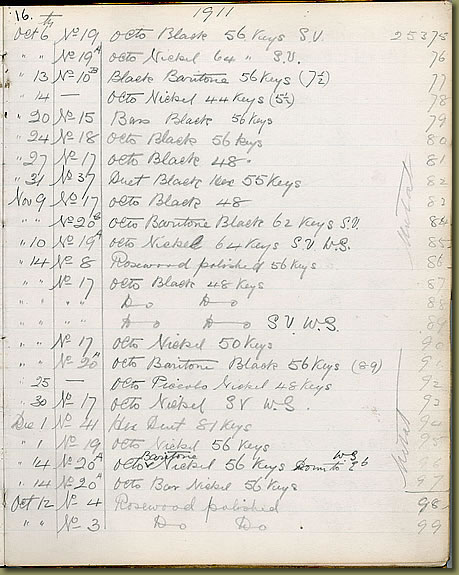 16. th 1911
Oct 6 No 19 octo Black 56 Keys S.V. 25375
" " No 19A octo Nickel 64 " S.V. 76
" 13 No 10B Black Baritone 56 Keys (7½) 77
" 14 — octo Nickel 44 Keys (5½) 78
" 20 No 15 Bass Black 56 Keys 79
" 24 No 18 octo Black 56 Keys 80
" 27 No 17 octo Black 48 · 81
" 31 No 37 Duet Black Hex 55 Keys 82
Nov 9 No 17 octo Black 48 83
" " No 20B octo Baritone Black 62 Keys S.V. 84
" 10 No 19A octo Nickel 64 Keys S.V. W.S. 85
" 14 No 8 Rosewood polished 56 Keys 86
" " No 17 octo Black 48 Keys 87
" " " Do Do 88
" " " Do Do S V W.S. 89
" " No 17 octo Nickel 50 Keys 90
" " No 20A octo Baritone Black 56 Keys (89) 91
" 25 — octo Piccolo Nickel 48 Keys 92
" 30 No 17 octo Nickel SV W.S. 93
Dec 1 No 41 Hex Duet 81 Keys 94
" 1 No 19 octo Nickel 56 Keys 95
" 14 No 20A octo Baritone Nickel 56 Keys W.S. Down to 96
" 14 No 20A octo Bar Nickel 56 Keys 97
Oct 12 No 4 Rosewood polished 98
" " No 3 Do Do . 99